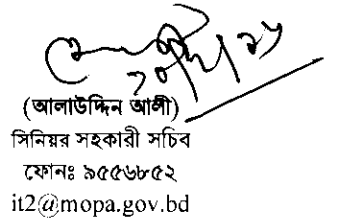 (আলাউদ্দিন আলী)
সিনিয়র সহকারী সচিব
ফোনঃ ৯৫৫৬৮৫২
it2@mopa.gov.bd